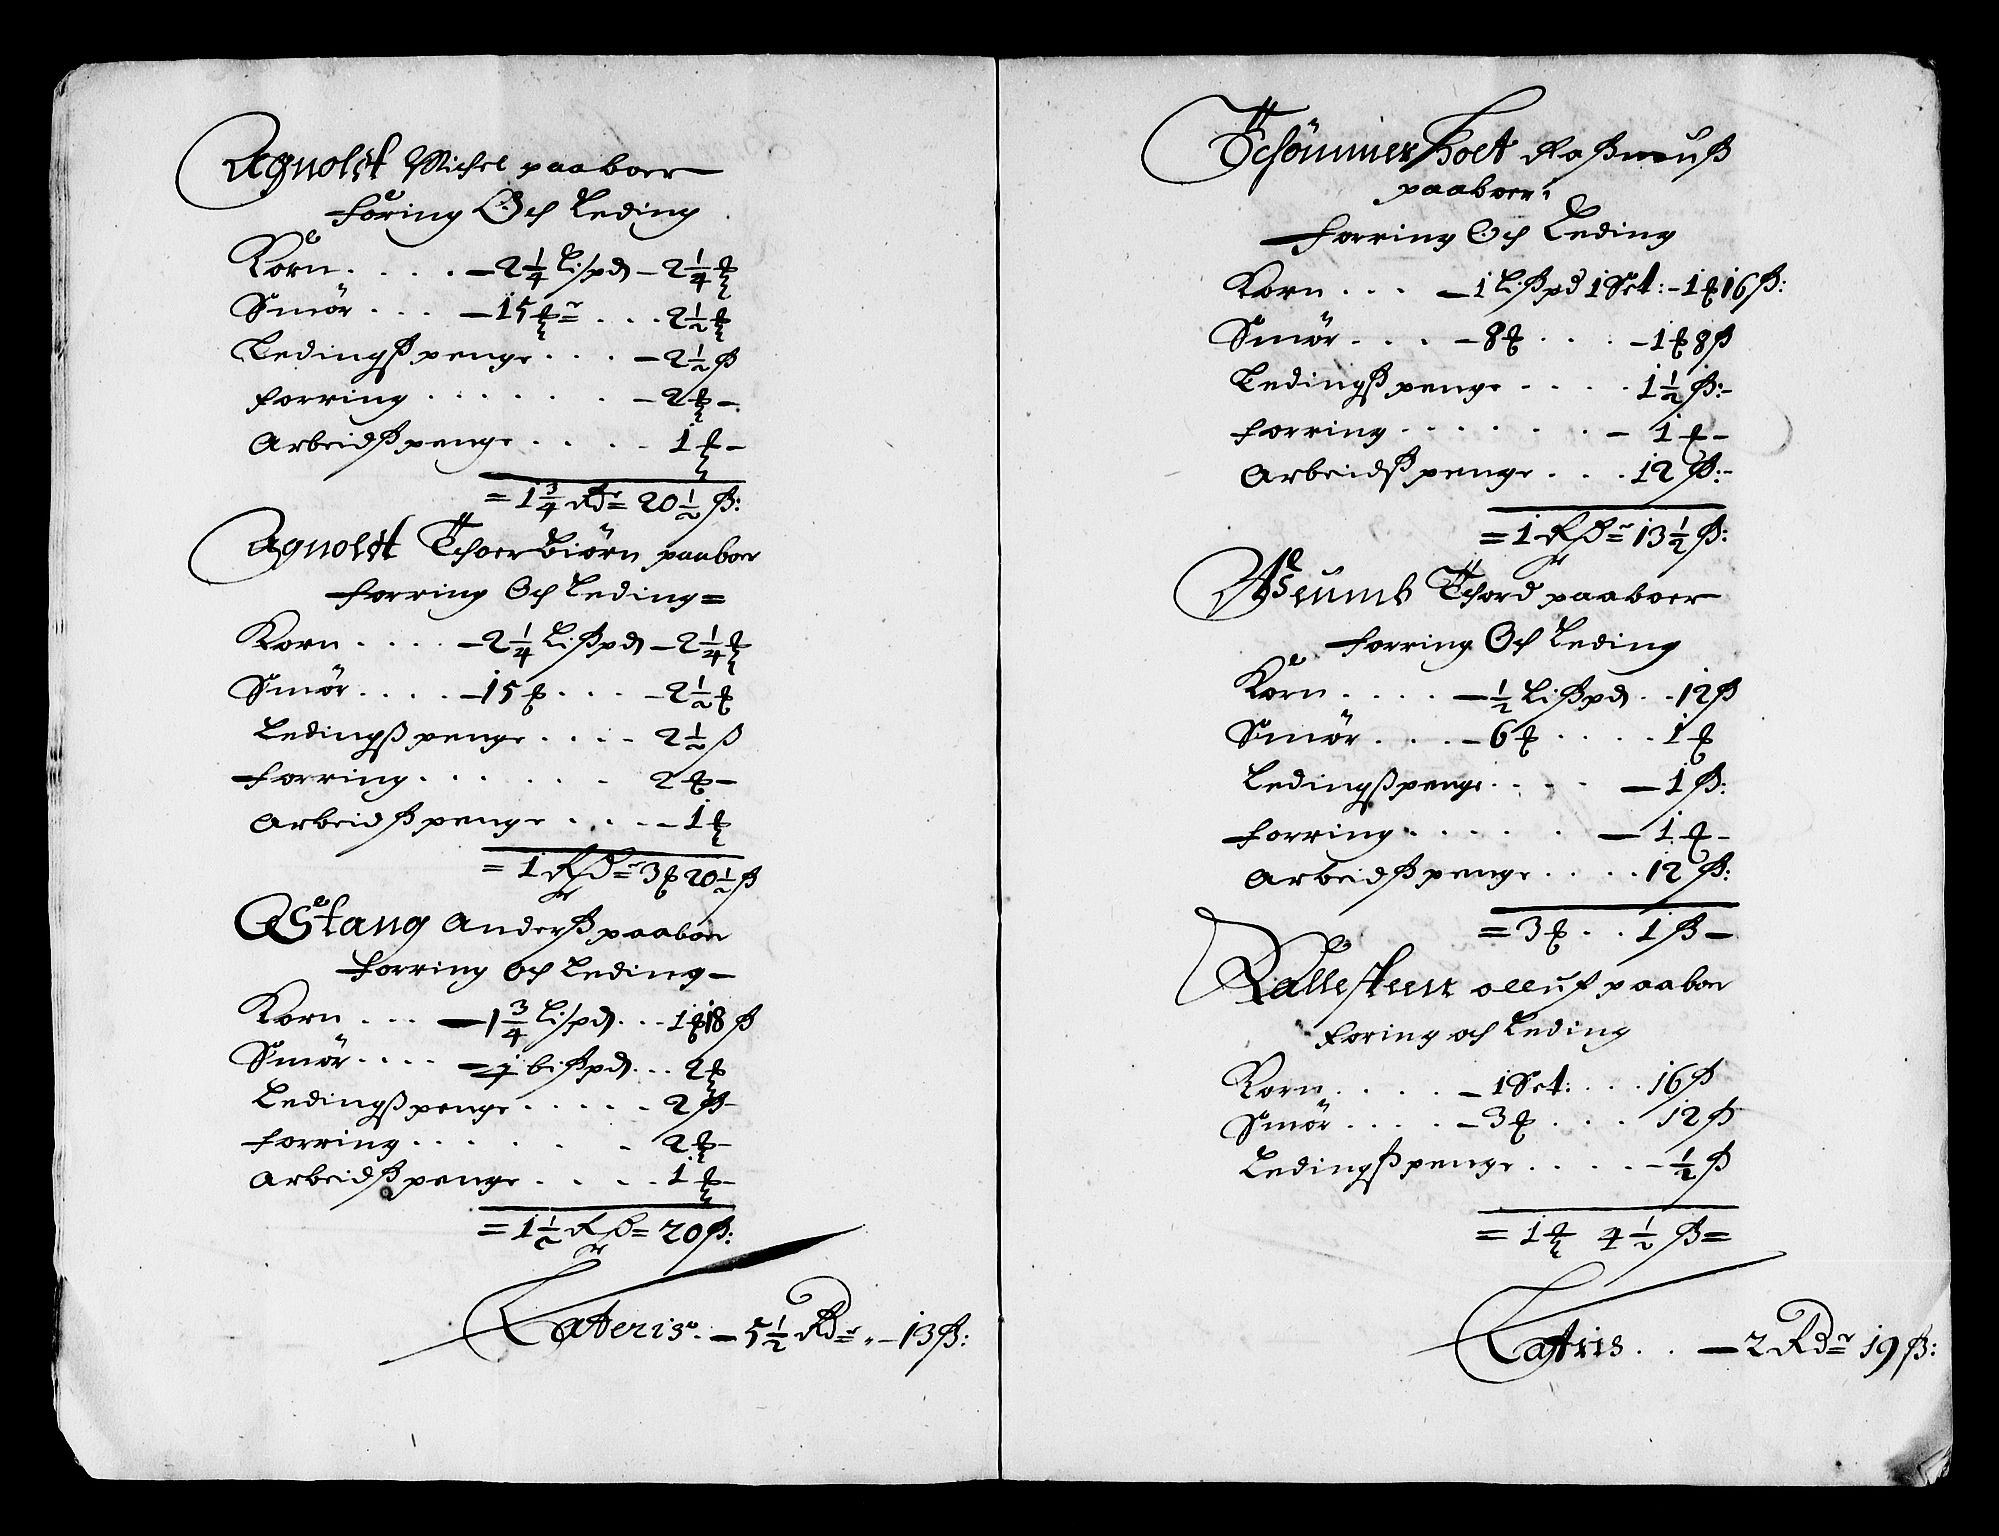 Agnoldt Michel paaboer
Foring Och Leding
Korn . . . . – 2 1/4 Lispd – 2 1/4 ℔
Smör . . . – 15 ℔ . . . 2 1/2 ℔
Ledingßpenge . . . – 2 1/2 ß
Forring . . . . . . – 2 ℔ –
Arbeidßpenge . . . . 1 ℔ –
= 1 3/4 Rdr 20 1/2 ß:
Agnoldt Thoerbiörn paaboer
Forring Och Leding =
Korn . . . . – 2 1/4 Lißpd – 2 1/4 ℔
Smör . . . . – 15 ℔ . . . – 2 1/2 ℔
Ledingßpenge . . . . 2 1/2 ß
Forring . . . . . . 2 ℔ –
Arbeidßpenge . . . – 1 ℔
= 1 Rdr 3 ℔ 20 1/2 ß
Stang Anderß paaboer
Forring Och Leding –
Korn . . . – 1 3/4 Lispd . . . 1 ℔ 18 ß
Smör . . . . – 1 Lißpd . . . 2 ℔
Ledingßpenge . . . . . 2 ß –
Forring . . . . . . 2 ℔ –
Arbeidßpenge . . . . 1 ℔ –
= 1 1/2 Rdr 20 ß:
Lateris – 5 1/2 Rdr – 13 ß:
Schömmerhoet Raßmuß
paaboer
Forring Och Leding
Korn . . . – 1 Lißpd 1 Set: – 1 ℔ 16 ß:
Smör . . . – 8 ℔ . . . – 1 ℔ 8 ß
Ledingßpenge . . . . 1 1/2 ß: –
Forring . . . . . . – 1 ℔ –
Arbeidßpenge . . . 12 ß: –
= 1 Rdr 13 1/2 ß:
Thord paaboer
Forring Och Leding
Korn . . . . – 1/2 Lißpd . . 12 ß
Smör . . . – 6 ℔ . . . . 1 ℔
Ledingßpenge . . . – 1 ß:
Forring . . . . . – 1 ℔ –
Arbeidßpenge . . . . 12 ß:
= 3 ℔ . . 1 ß –
Rallesteen Olluf paaboer
Foring och Leding
Korn . . . . . – 1 Set: . . . 16 ß
Smör . . . . – 3 ℔ . . . 12 ß
Ledingßpenge . . . . – 1/2 ß
= 1 ℔ 4 1/2 ß =
Latris . . – 2 Rdr 19 ß: